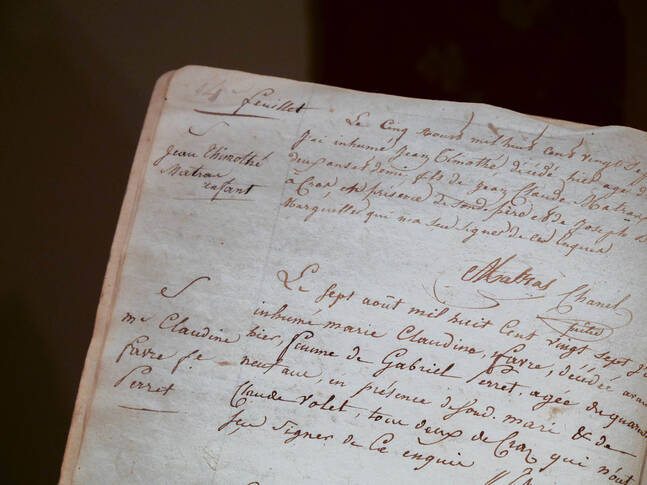 14 feuillet
Jean Thimothé
Matras
enfant
Le Cinq août mil huit cent vingt sep
J'ai inhumé Jean Timothé, décédé hier agé d
deux ans et demi, fils de Jean Claude Matras
à Craz, en présence de sond. père, & de Joseph
Marguiller qui n'a seu signer de ce enquis
Matras Chanel
prêtre
me Claudine
favre fe
Perret
Le sept août mil huit Cent vingt sept j'
inhumé marie Claudine, favre, décédée avan
hier, femme de Gabriel Perret, agée de quaran
neuf ans, en présence de sond. mari & de
Claude Volet, tous deux de Craz qui n'ont
seu signer de Ce enquis